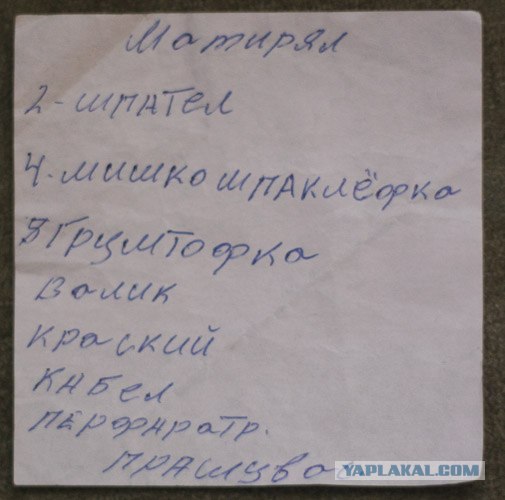 Матирял
2-шпател
4.мишко шпаклёфка
8 Грумтофка
Валик
краский
кабел
перфаратр.
YAPLAKAL.COM